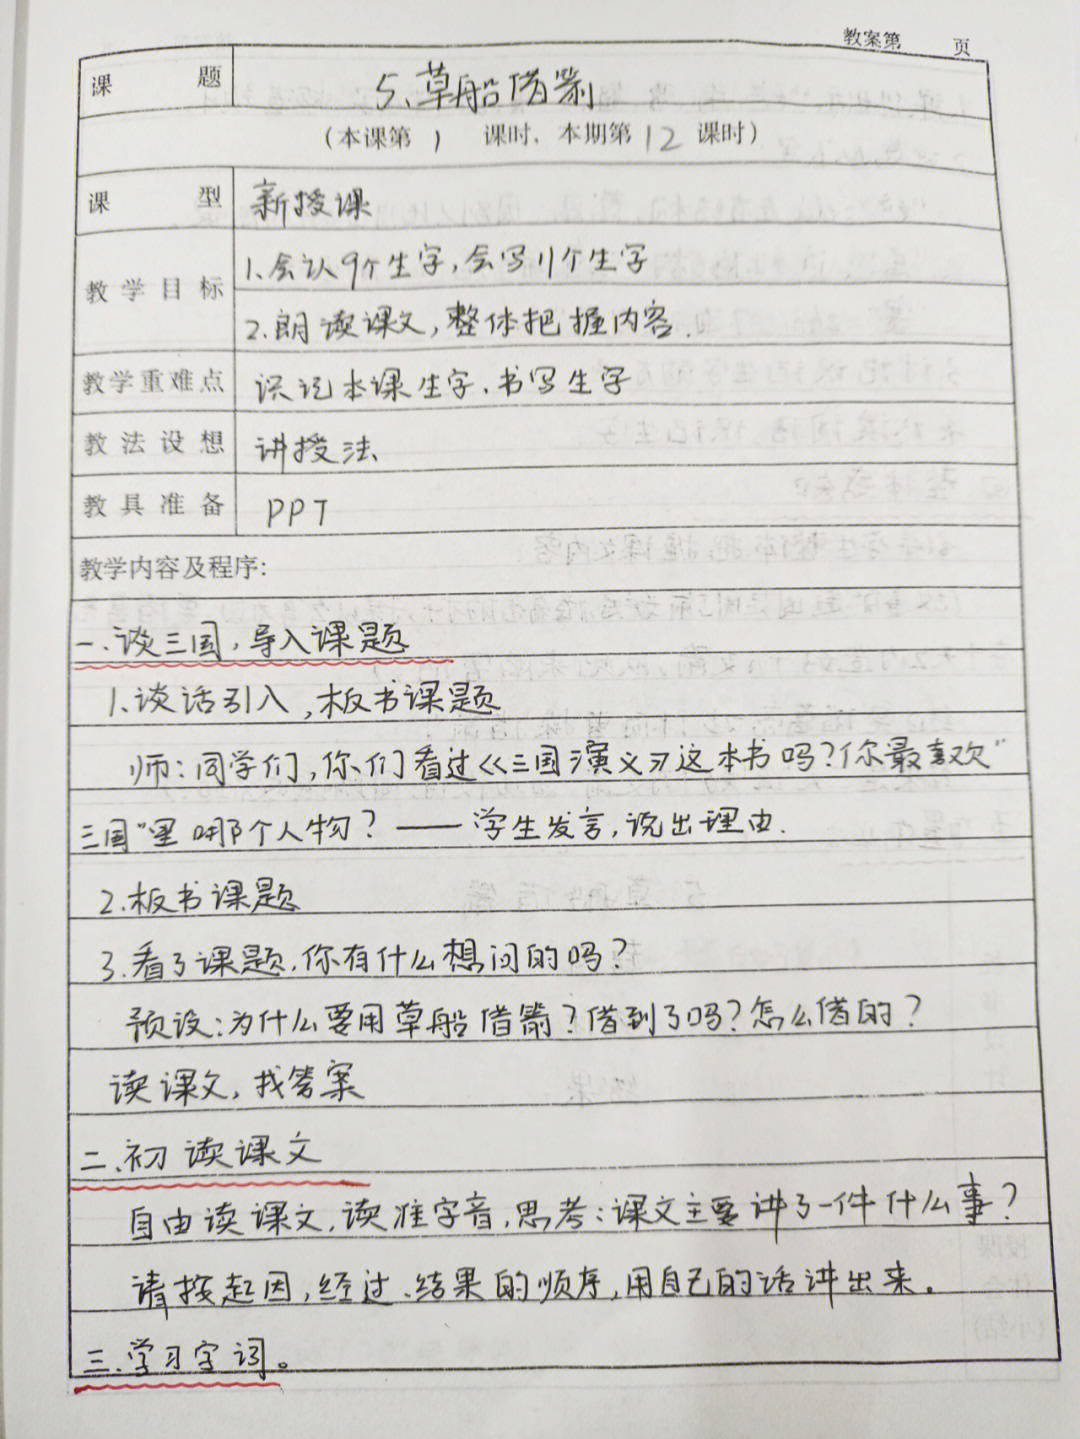 教案第 页
课题 5、草船借箭
(本课第 1 课时、本期第 12 课时)
课型 新授课
教学目标 1.会认9个生字,会写11个生字
2.朗读课文,整体把握内容.
教学重难点 识记本课生字、书写生字
教法设想 讲授法、
教具准备 PPT
教学内容及程序:
一、谈三国,导入课题
1.谈话引入,板书课题
师:同学们,你们看过《三国演义》这本书吗?你最喜欢"
三国"里哪个人物?——学生发言,说出理由.
2.板书课题
3.看了课题,你有什么想问的吗?
预设:为什么要用草船借箭?借到了吗?怎么借的?
读课文,找答案
二、初读课文
自由读课文,读准字音,思考:课文主要讲了一件什么事?
请按起因,经过、结果的顺序,用自己的话讲出来。
三、学习字词。